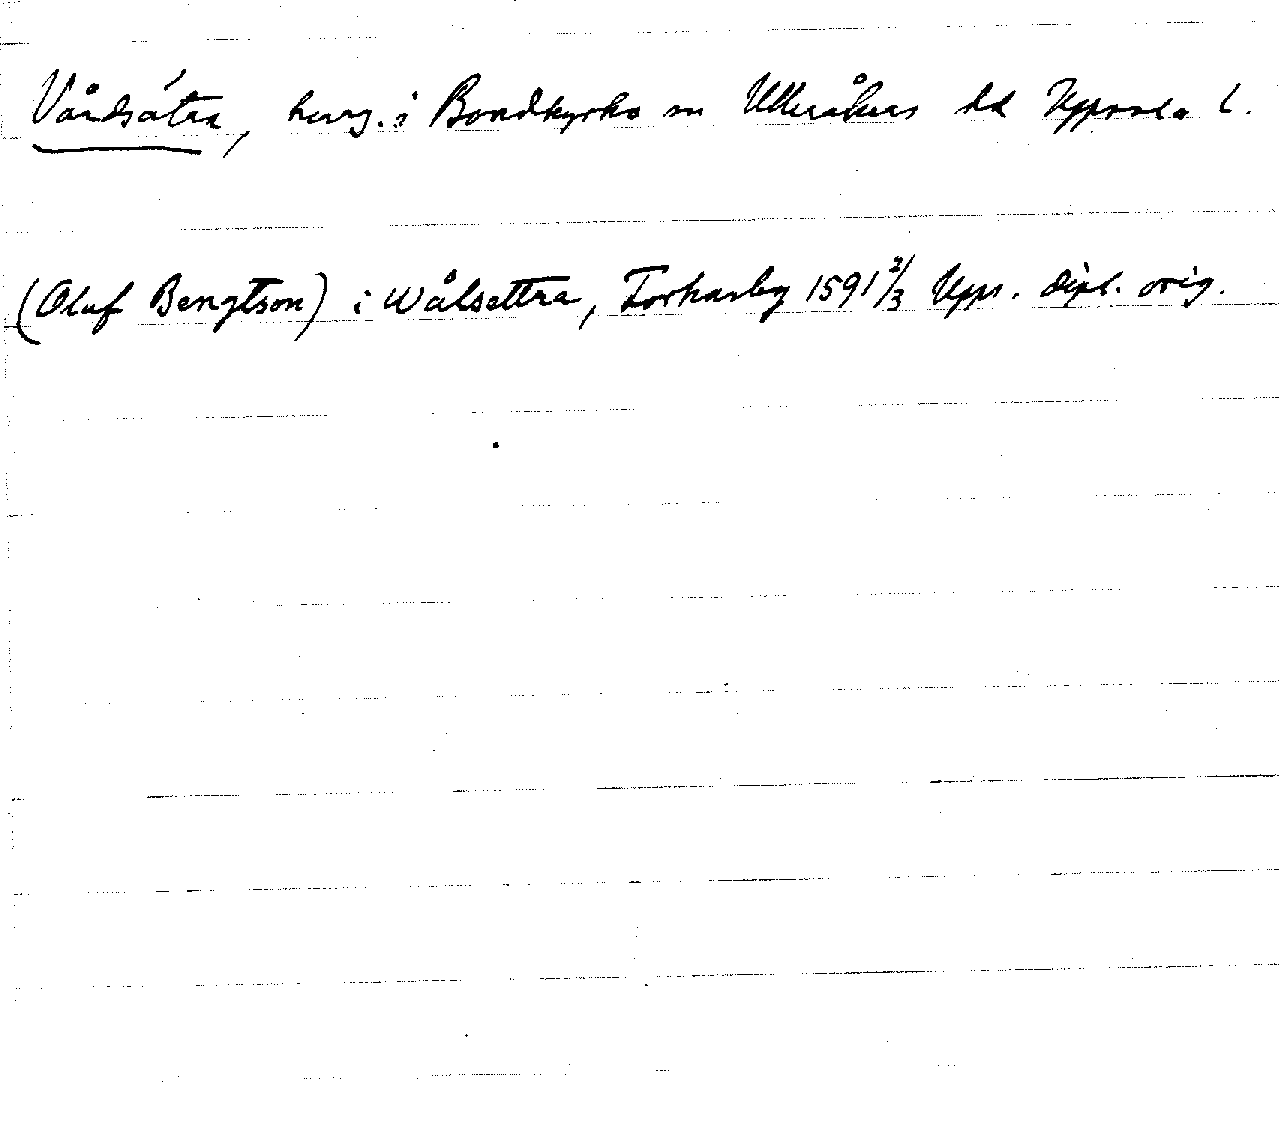 Vårdsätra, herrg. i Bondkyrko sn Ulleråkers hd Uppsala l.
(Oluf Bengtson) i Wålsettra, Torkarby 1591 2/3 Upps. dipl. orig.